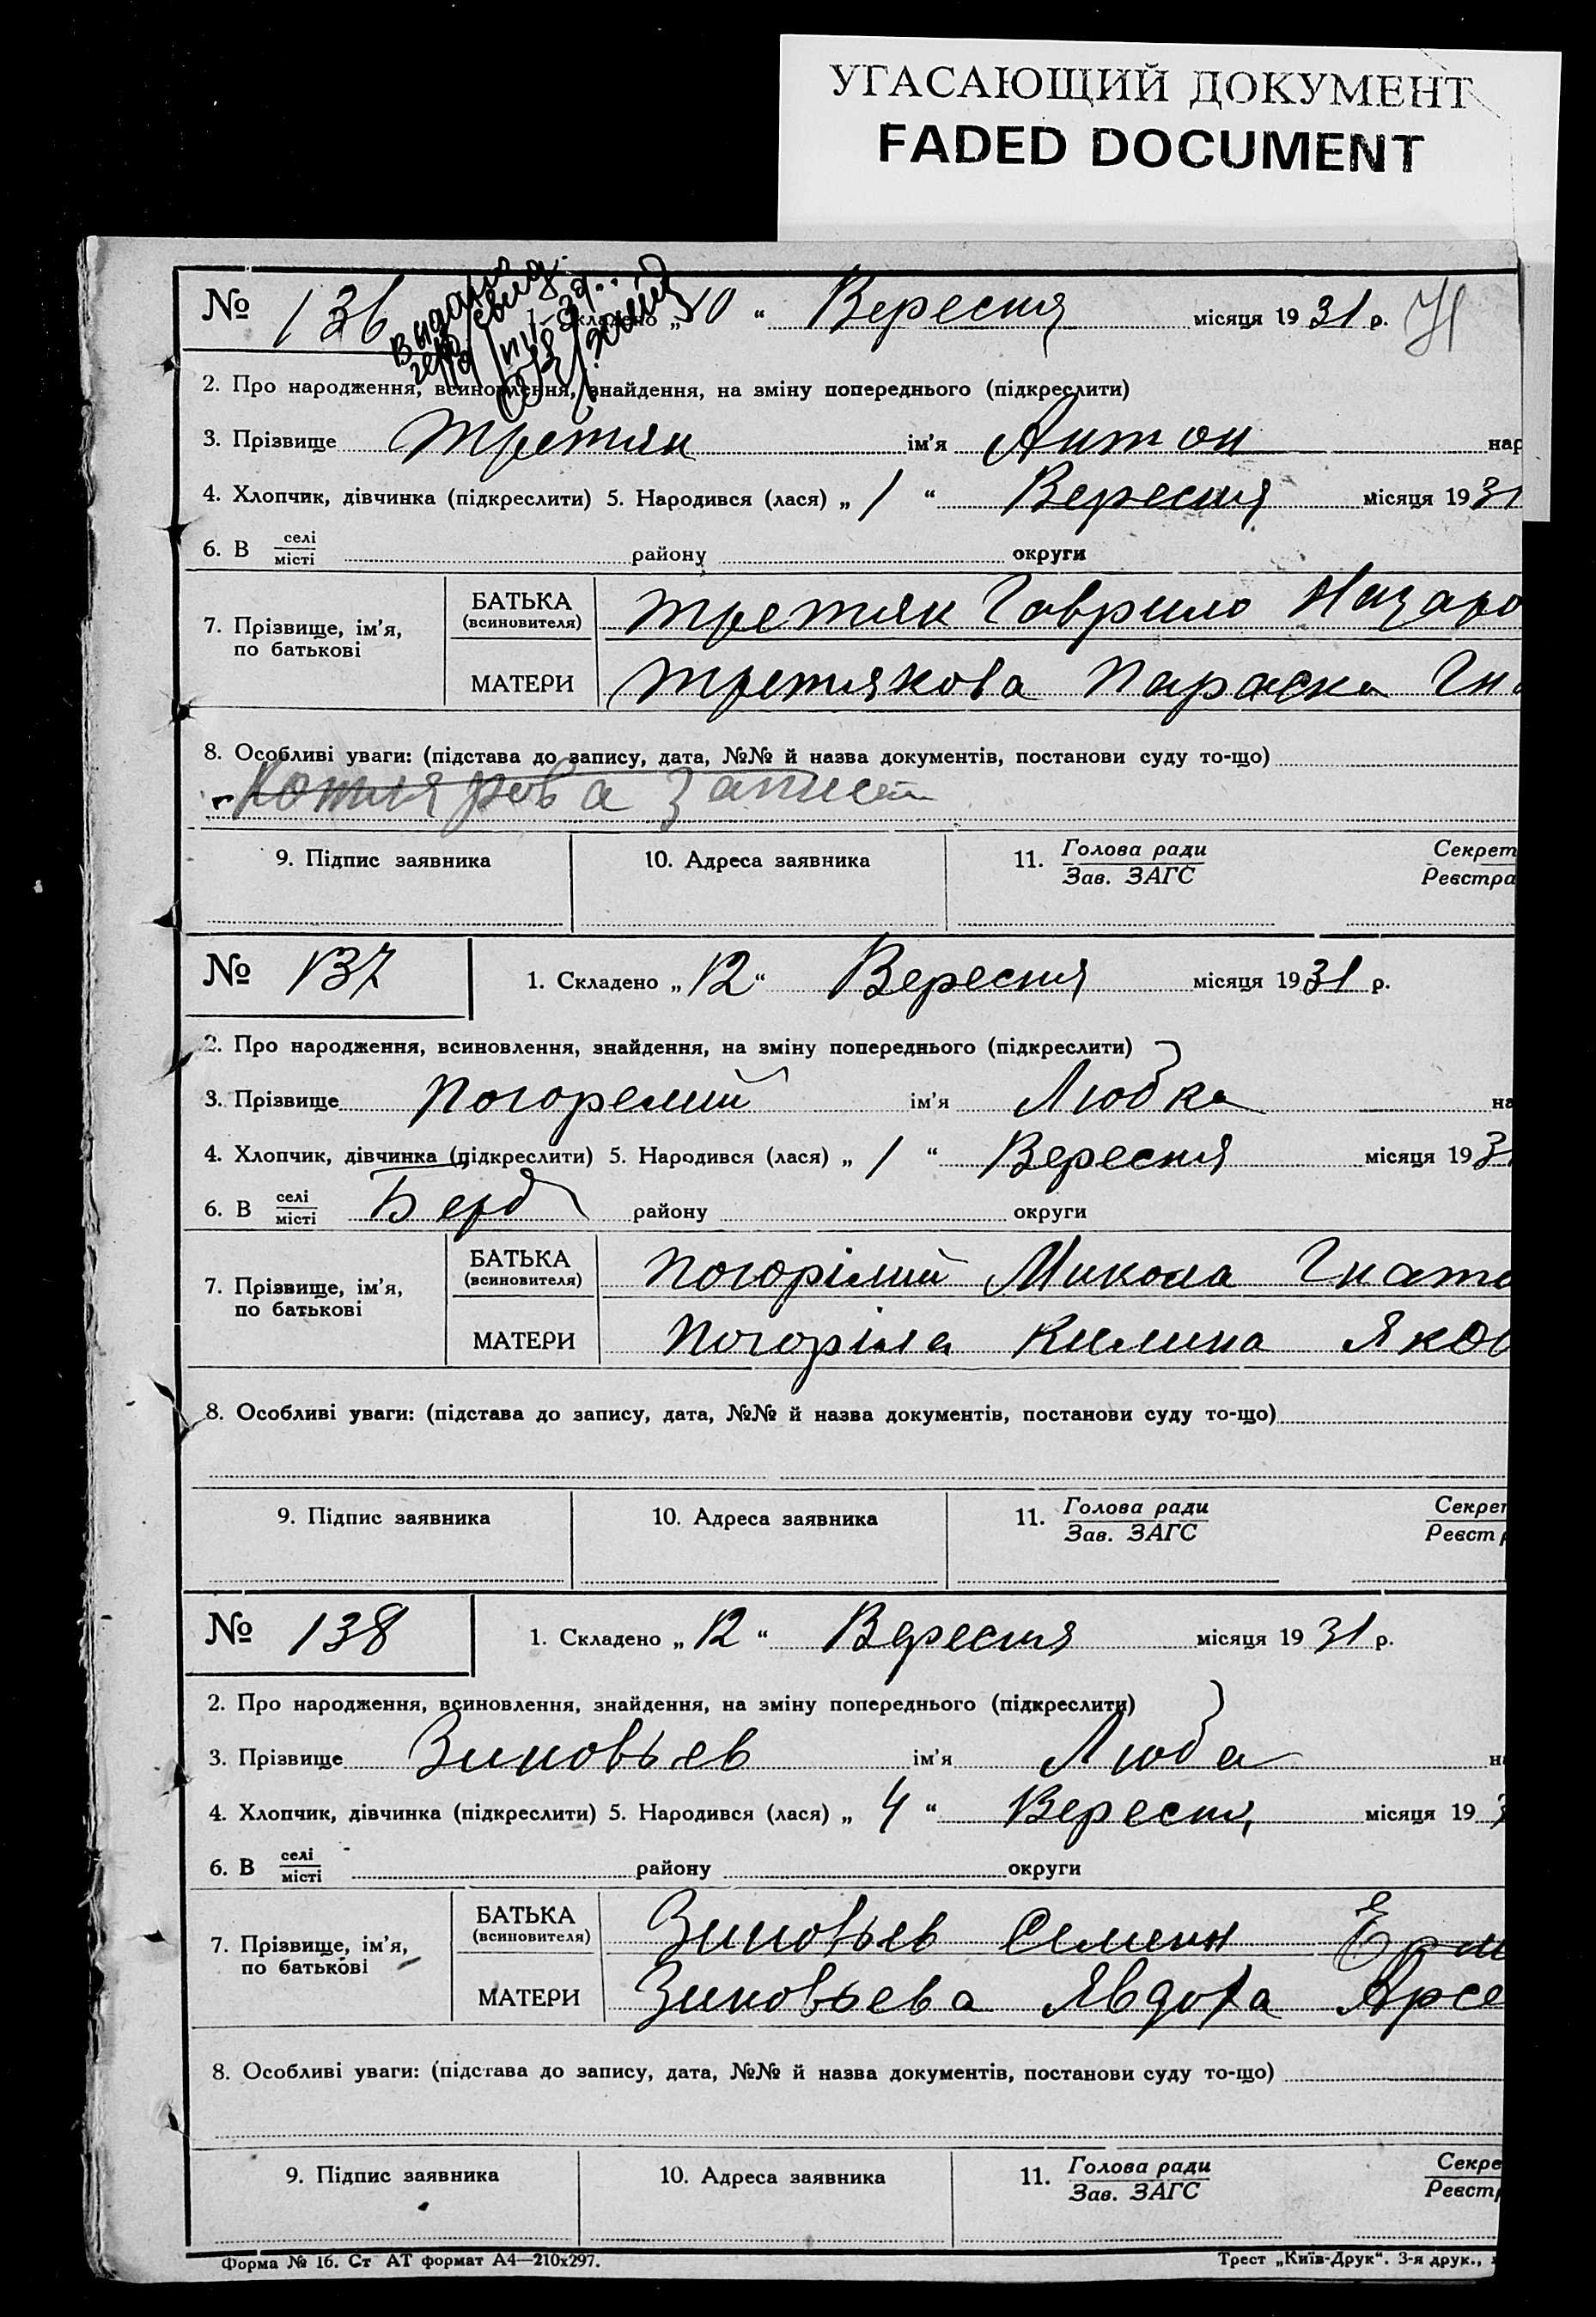 УГАСАЮЩИЙ ДОКУМЕНТ
FADED DOCUMENT
№ 136 1. Складено „10“ Вересня місяця 1931 р.
Видано
2. Про народження, всиновлення, знайдення, на зміну попереднього (підкреслити)
3. Прізвище Третяк ім'я Антон нар
4. Хлопчик, дівчинка (підкреслити) 5. Народився (лася) „1“ Вересня місяця 1931
6. В селі/місті району округи
7. Прізвище, ім'я, по батькові
БАТЬКА (всиновителя) Третяк Гаврило Назаро
МАТЕРИ Третякова Параска Гна
8. Особливі уваги: (підстава до запису, дата, №№ й назва документів, постанови суду то-що)
Котлярова
9. Підпис заявника 10. Адреса заявника 11. Голова ради/Зав. ЗАГС Секрет/Реєстра
№ 137 1. Складено „12“ Вересня місяця 1931 р.
2. Про народження, всиновлення, знайдення, на зміну попереднього (підкреслити)
3. Прізвище Погорелий ім'я Любка на
4. Хлопчик, дівчинка (підкреслити) 5. Народився (лася) „1“ Вересня місяця 193
6. В селі/місті Берд району округи
7. Прізвище, ім'я, по батькові
БАТЬКА (всиновителя) Погорілий Микола Гнато
МАТЕРИ Погоріла Килина Яков
8. Особливі уваги: (підстава до запису, дата, №№ й назва документів, постанови суду то-що)
9. Підпис заявника 10. Адреса заявника 11. Голова ради/Зав. ЗАГС Секрет/Реєст
№ 138 1. Складено „12“ Вересня місяця 1931 р.
2. Про народження, всиновлення, знайдення, на зміну попереднього (підкреслити)
3. Прізвище Зиновьев ім'я Люба на
4. Хлопчик, дівчинка (підкреслити) 5. Народився (лася) „4“ Вересня місяця 193
6. В селі/місті району округи
7. Прізвище, ім'я, по батькові
БАТЬКА (всиновителя) Зиновьев Семен
МАТЕРИ Зиновьева Явдоха Арсе
8. Особливі уваги: (підстава до запису, дата, №№ й назва документів, постанови суду то-що)
9. Підпис заявника 10. Адреса заявника 11. Голова ради/Зав. ЗАГС Секре/Реєст
Форма № 16. Ст АТ формат А4—210х297. Трест „Київ-Друк“. 3-я друк.,